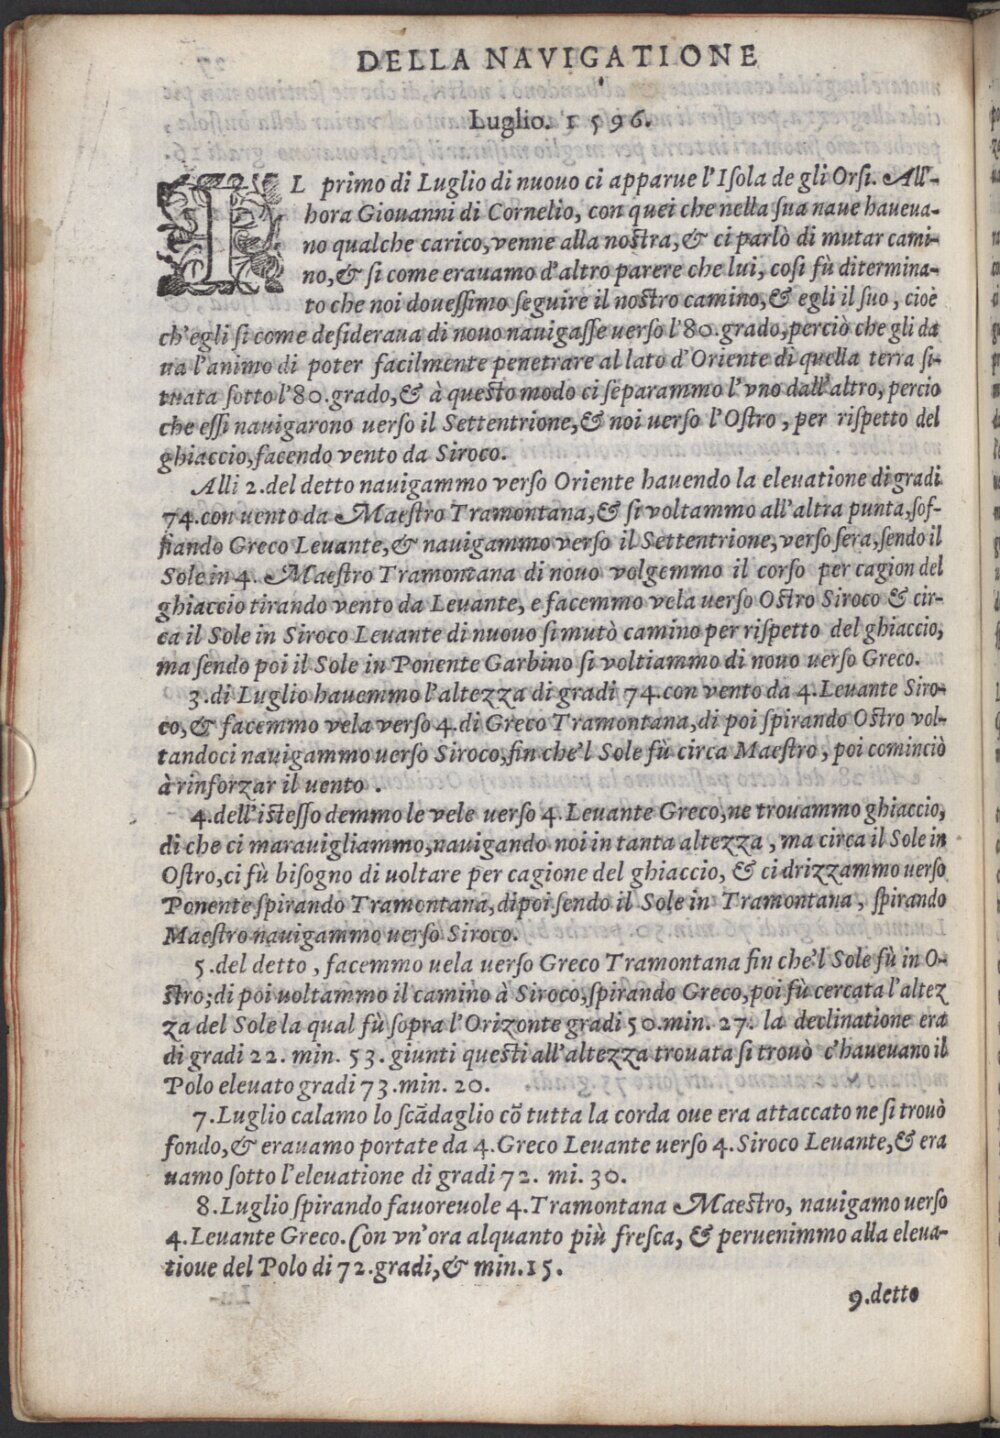 DELLA NAVIGATIONE
Luglio. 1596.
IL primo di Luglio di nuouo ci apparue l'Isola de gli Orsi. All'-
hora Giouanni di Cornelio, con quei che nella sua naue haveua-
no qualche carico, venne alla nostra, & ci parlò di mutar cami-
no, & si come erauamo d'altro parere che lui, cosi fù ditermina-
to che noi douessimo seguire il nostro camino, & egli il suo, cioè
ch'egli si come desideraua di nouo nauigasse verso l'80. grado, perciò che gli da
ua l'animo di poter facilmente penetrare al lato d'Oriente di quella terra si-
tuata sotto l'80. grado, & à questo modo ci separammo l'vno dall'altro, percio
che essi nauigarono uerso il Settentrione, & noi uerso l'Ostro, per rispetto del
ghiaccio, facendo vento da Siroco.
Alli 2. del detto nauigammo verso Oriente hauendo la eleuatione di gradi
74. con uento da Maestro Tramontana, & si voltammo all'altra punta, sof-
fiando Greco Leuante, & nauigammo verso il Settentrione, verso sera, sendo il
Sole in 4. Maestro Tramontana di nouo volgemmo il corso per cagion del
ghiaccio tirando vento da Leuante, e facemmo vela uerso Ostro Siroco & cir-
ca il Sole in Siroco Leuante di nuouo si mutò camino per rispetto del ghiaccio,
ma sendo poi il Sole in Ponente Garbino si voltiammo di nouo uerso Greco.
3. di Luglio hauemmo l'altezza di gradi 74. con vento da 4. Leuante Siro-
co, & facemmo vela verso 4. di Greco Tramontana, di poi spirando Ostro vol-
tandoci nauigammo uerso Siroco, fin che'l Sole fù circa Maestro, poi cominciò
à rinforzar il uento.
4. dell'istesso demmo le vele uerso 4. Leuante Greco, ne trouammo ghiaccio,
di che ci marauigliammo, nauigando noi in tanta altezza, ma circa il Sole in
Ostro, ci fù bisogno di uoltare per cagione del ghiaccio, & ci drizzammo uerso
Ponente spirando Tramontana, dipoi sendo il Sole in Tramontana, spirando
Maestro nauigammo uerso Siroco.
5. del detto, facemmo uela uerso Greco Tramontana fin che'l Sole fù in O-
stro; di poi uoltammo il camino à Siroco, spirando Greco, poi fù cercata l'altez
za del Sole la qual fù sopra l'Orizonte gradi 50. min. 27. la declinatione era
di gradi 22. min. 53. giunti questi all'altezza trouata si trouò c'haueuano il
Polo eleuato gradi 73. min. 20.
7. Luglio calamo lo scādaglio cō tutta la corda oue era attaccato ne si trouò
fondo, & erauamo portate da 4. Greco Leuante uerso 4. Siroco Leuante, & era
uamo sotto l'eleuatione di gradi 72. mi. 30.
8. Luglio spirando fauoreuole 4. Tramontana Maestro, nauigamo uerso
4. Leuante Greco. Con vn'ora alquanto più fresca, & peruenimmo alla eleua-
tioue del Polo di 72. gradi, & min. 15.
9. detto